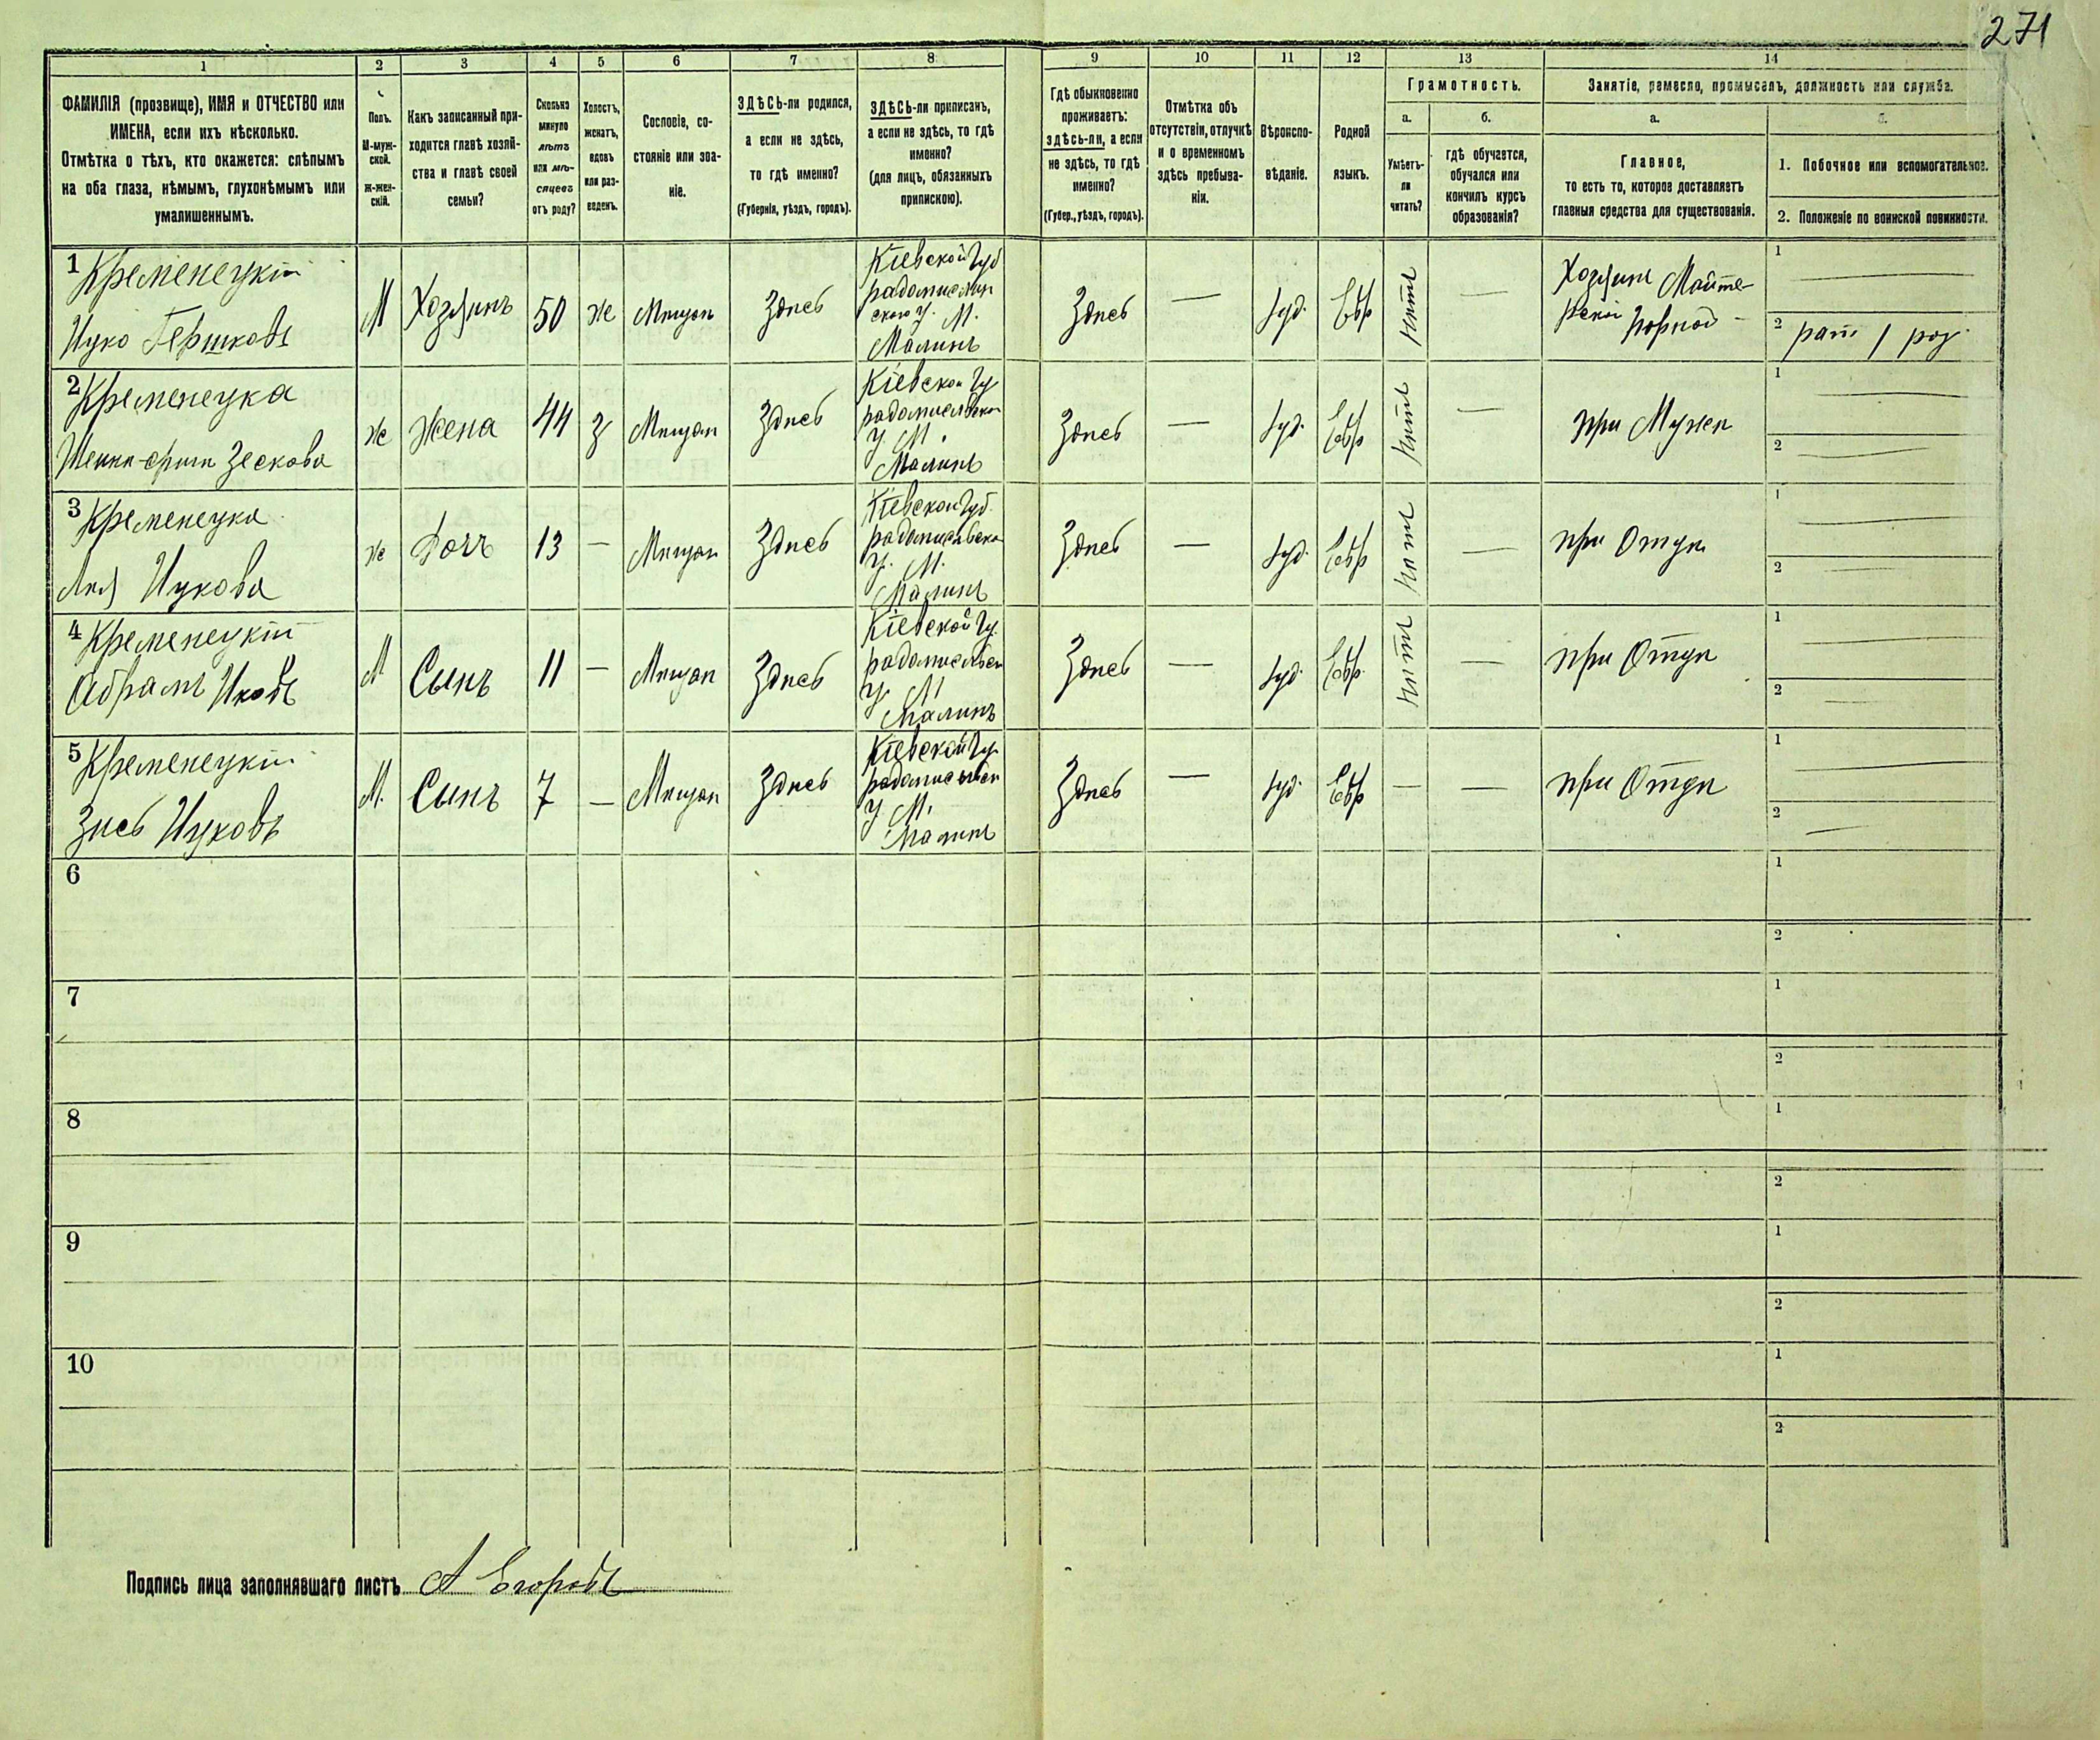 271
1 2 3 4 5 6 7 8 9 10 11 12 13 14
ФАМИЛІЯ (прозвище), ИМЯ и ОТЧЕСТВО или
ИМЕНА, если ихъ нѣсколько.
Отмѣтка о тѣхъ, кто окажется: слѣпымъ
на оба глаза, нѣмымъ, глухонѣмымъ или
умалишеннымъ.
Полъ.
М-муж-
ской.
Ж-жен-
скій.
Какъ записанный при-
ходится главѣ хозяй-
ства и главѣ своей
семьи?
Сколько
минуло
лѣтъ
или мѣ-
сяцевъ
отъ роду?
Холостъ,
женатъ,
вдовъ
или раз-
веденъ.
Сословіе, со-
стояніе или зва-
ніе.
ЗДѢСЬ-ли родился,
а если не здѣсь,
то гдѣ именно?
(Губернія, уѣздъ, городъ).
ЗДѢСЬ-ли приписанъ,
а если не здѣсь, то гдѣ
именно?
(для лицъ, обязанныхъ
припискою).
Гдѣ обыкновенно
проживаетъ:
здѣсь-ли, а если
не здѣсь, то гдѣ
именно?
(Губер., уѣздъ, городъ).
Отмѣтка объ
отсутствіи, отлучкѣ
и о временномъ
здѣсь пребыва-
ніи.
Вѣроиспо-
вѣданіе.
Родной
языкъ.
Грамотность.
а.
Умѣетъ-
ли
читать?
б.
гдѣ обучается,
обучался или
кончилъ курсъ
образованія?
Занятіе, ремесло, промыселъ, должность или служба.
а.
Главное,
то есть то, которое доставляетъ
главныя средства для существованія.
б.
1. Побочное или вспомогательное.
2. Положеніе по воинской повинности.
1 Кременецкій
Ицко Гершковъ
М
Хозяинъ
50
Же
Мещан
Здѣсь
Кіевской Губ
радомисль
ского У. М.
Малинъ
Здѣсь
—
Іуд.
Евр
нѣтъ
—
Хозяинъ
1
2
2 Кременецка
Же
Жена
44
З
Мещан
Здѣсь
Кіевской Гу
радомисльско
У. М.
Малинъ
Здѣсь
—
Іуд.
Евр
нѣтъ
—
при Мужѣ
1
2
3 Кременецка
Ицкова
Же
Дочь
13
—
Мещан
Здѣсь
Кіевской Губ.
радомисльско
У. М.
Малинъ
Здѣсь
—
Іуд.
Евр
нѣтъ
—
при Отцѣ
1
2
4 Кременецкій
Абрамъ Ицковъ
М
Сынъ
11
—
Мещан
Здѣсь
Кіевской Гу.
радомисльск
У. М
Малинъ
Здѣсь
—
Іуд.
Евр.
нѣтъ
—
при Отцѣ
1
2
5 Кременецкій
Зусь Ицковъ
М.
Сынъ
7
—
Мещан
Здѣсь
Кіевской Гу
радомисльск
У. М.
Малинъ
Здѣсь
—
Іуд.
Евр
—
—
при Отцѣ
1
2
6
1
2
7
1
2
8
1
2
9
1
2
10
1
2
Подпись лица заполнявшаго листъ А Егоровъ